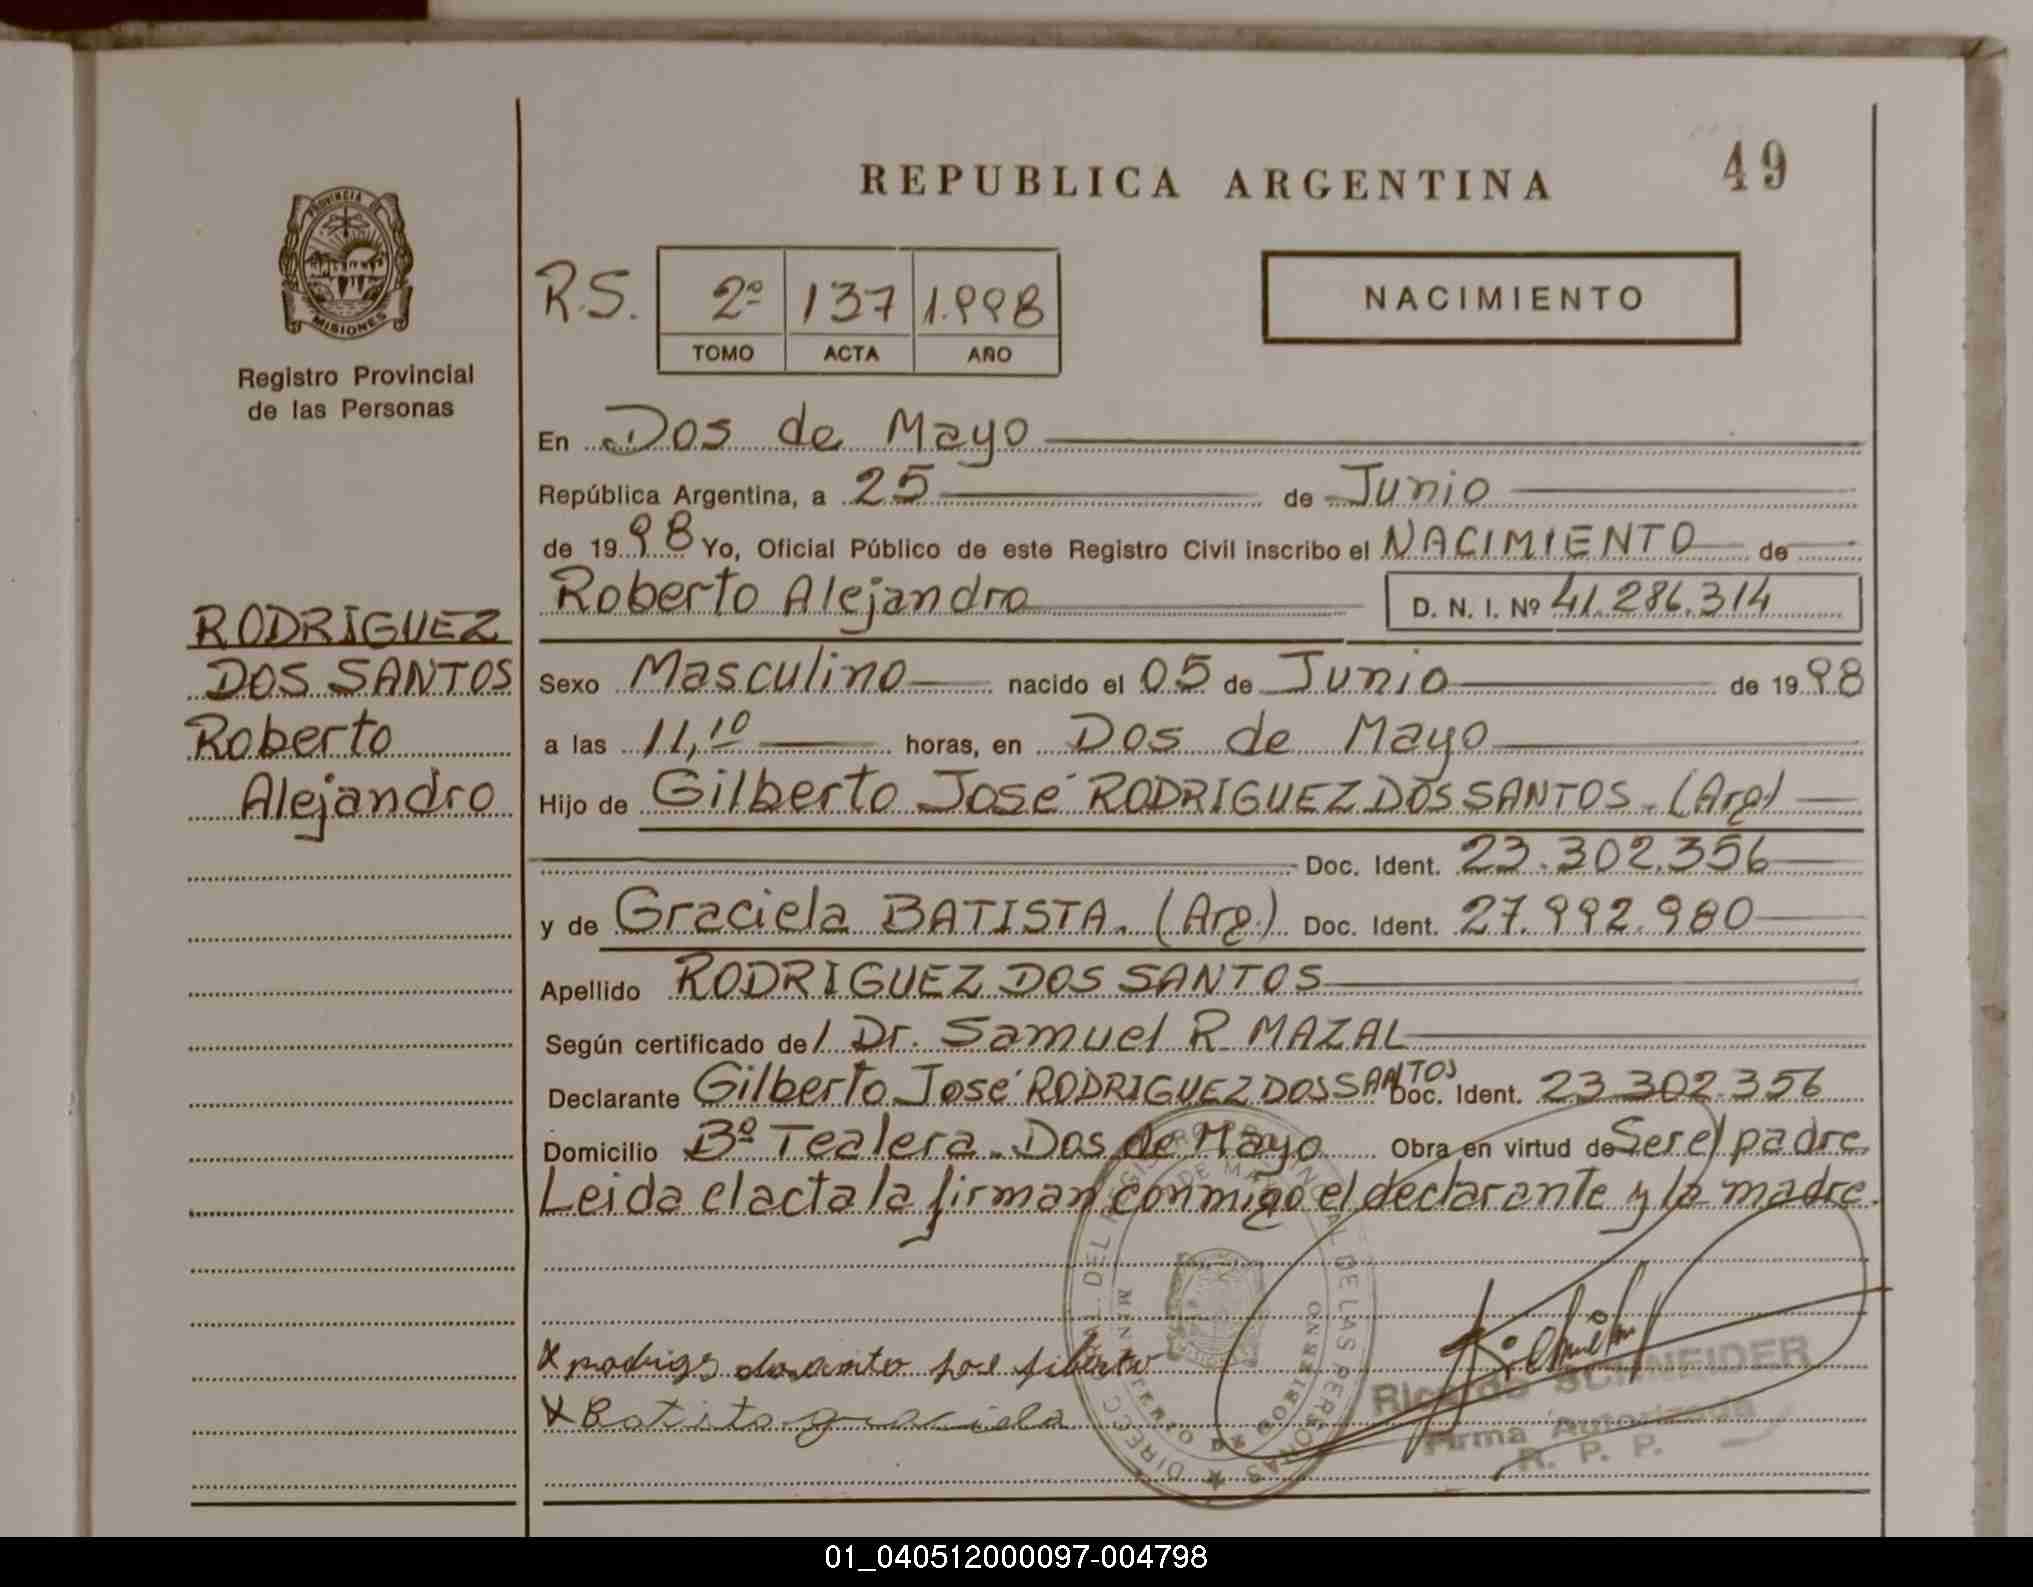 REPUBLICA ARGENTINA
49
PROVINCIA DE
MISIONES
Registro Provincial
de las Personas
R.S.
2º 137 1.998
TOMO ACTA AÑO
NACIMIENTO
En Dos de Mayo
República Argentina, a 25 de Junio
de 1998 Yo, Oficial Público de este Registro Civil inscribo el NACIMIENTO de
Roberto Alejandro D. N. I. Nº 41.286.314
RODRIGUEZ
DOS SANTOS
Roberto
Alejandro
Sexo Masculino nacido el 05 de Junio de 1998
a las 11,10 horas, en Dos de Mayo
Hijo de Gilberto José RODRIGUEZ DOS SANTOS. (Arg)
Doc. Ident. 23.302.356
y de Graciela BATISTA. (Arg.) Doc. Ident. 27.992.980
Apellido RODRIGUEZ DOS SANTOS
Según certificado del Dr. Samuel R MAZAL
Declarante Gilberto José RODRIGUEZ DOS SANTOS Doc. Ident. 23 302.356
Domicilio Bº Tealera. Dos de Mayo Obra en virtud de Ser el padre.
Leida el acta la firman conmigo el declarante y la madre.
Batista graciela
Ricardo SCHNEIDER
Firma Autorizada
R. P. P.
01_040512000097-004798